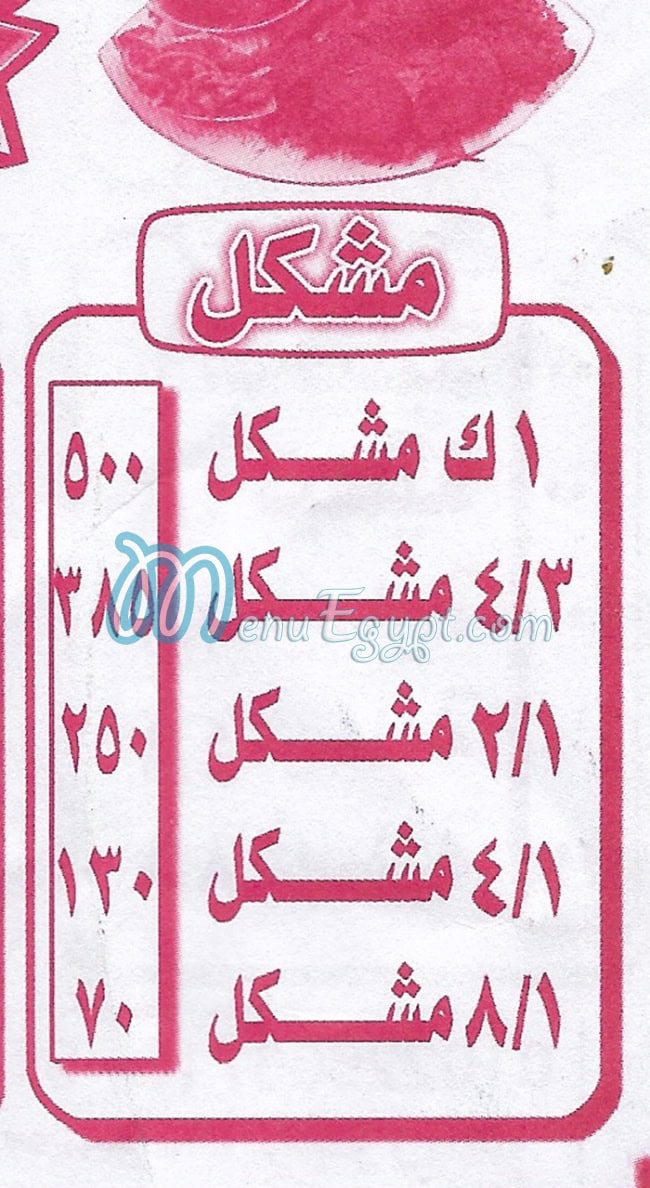 مشكل
١ ك مشكل ٥٠٠
٤/٣ مشكل ٣٨٥
MenuEgypt.com
٢/١ مشكل ٢٥٠
٤/١ مشكل ١٣٠
٨/١ مشكل ٧٠